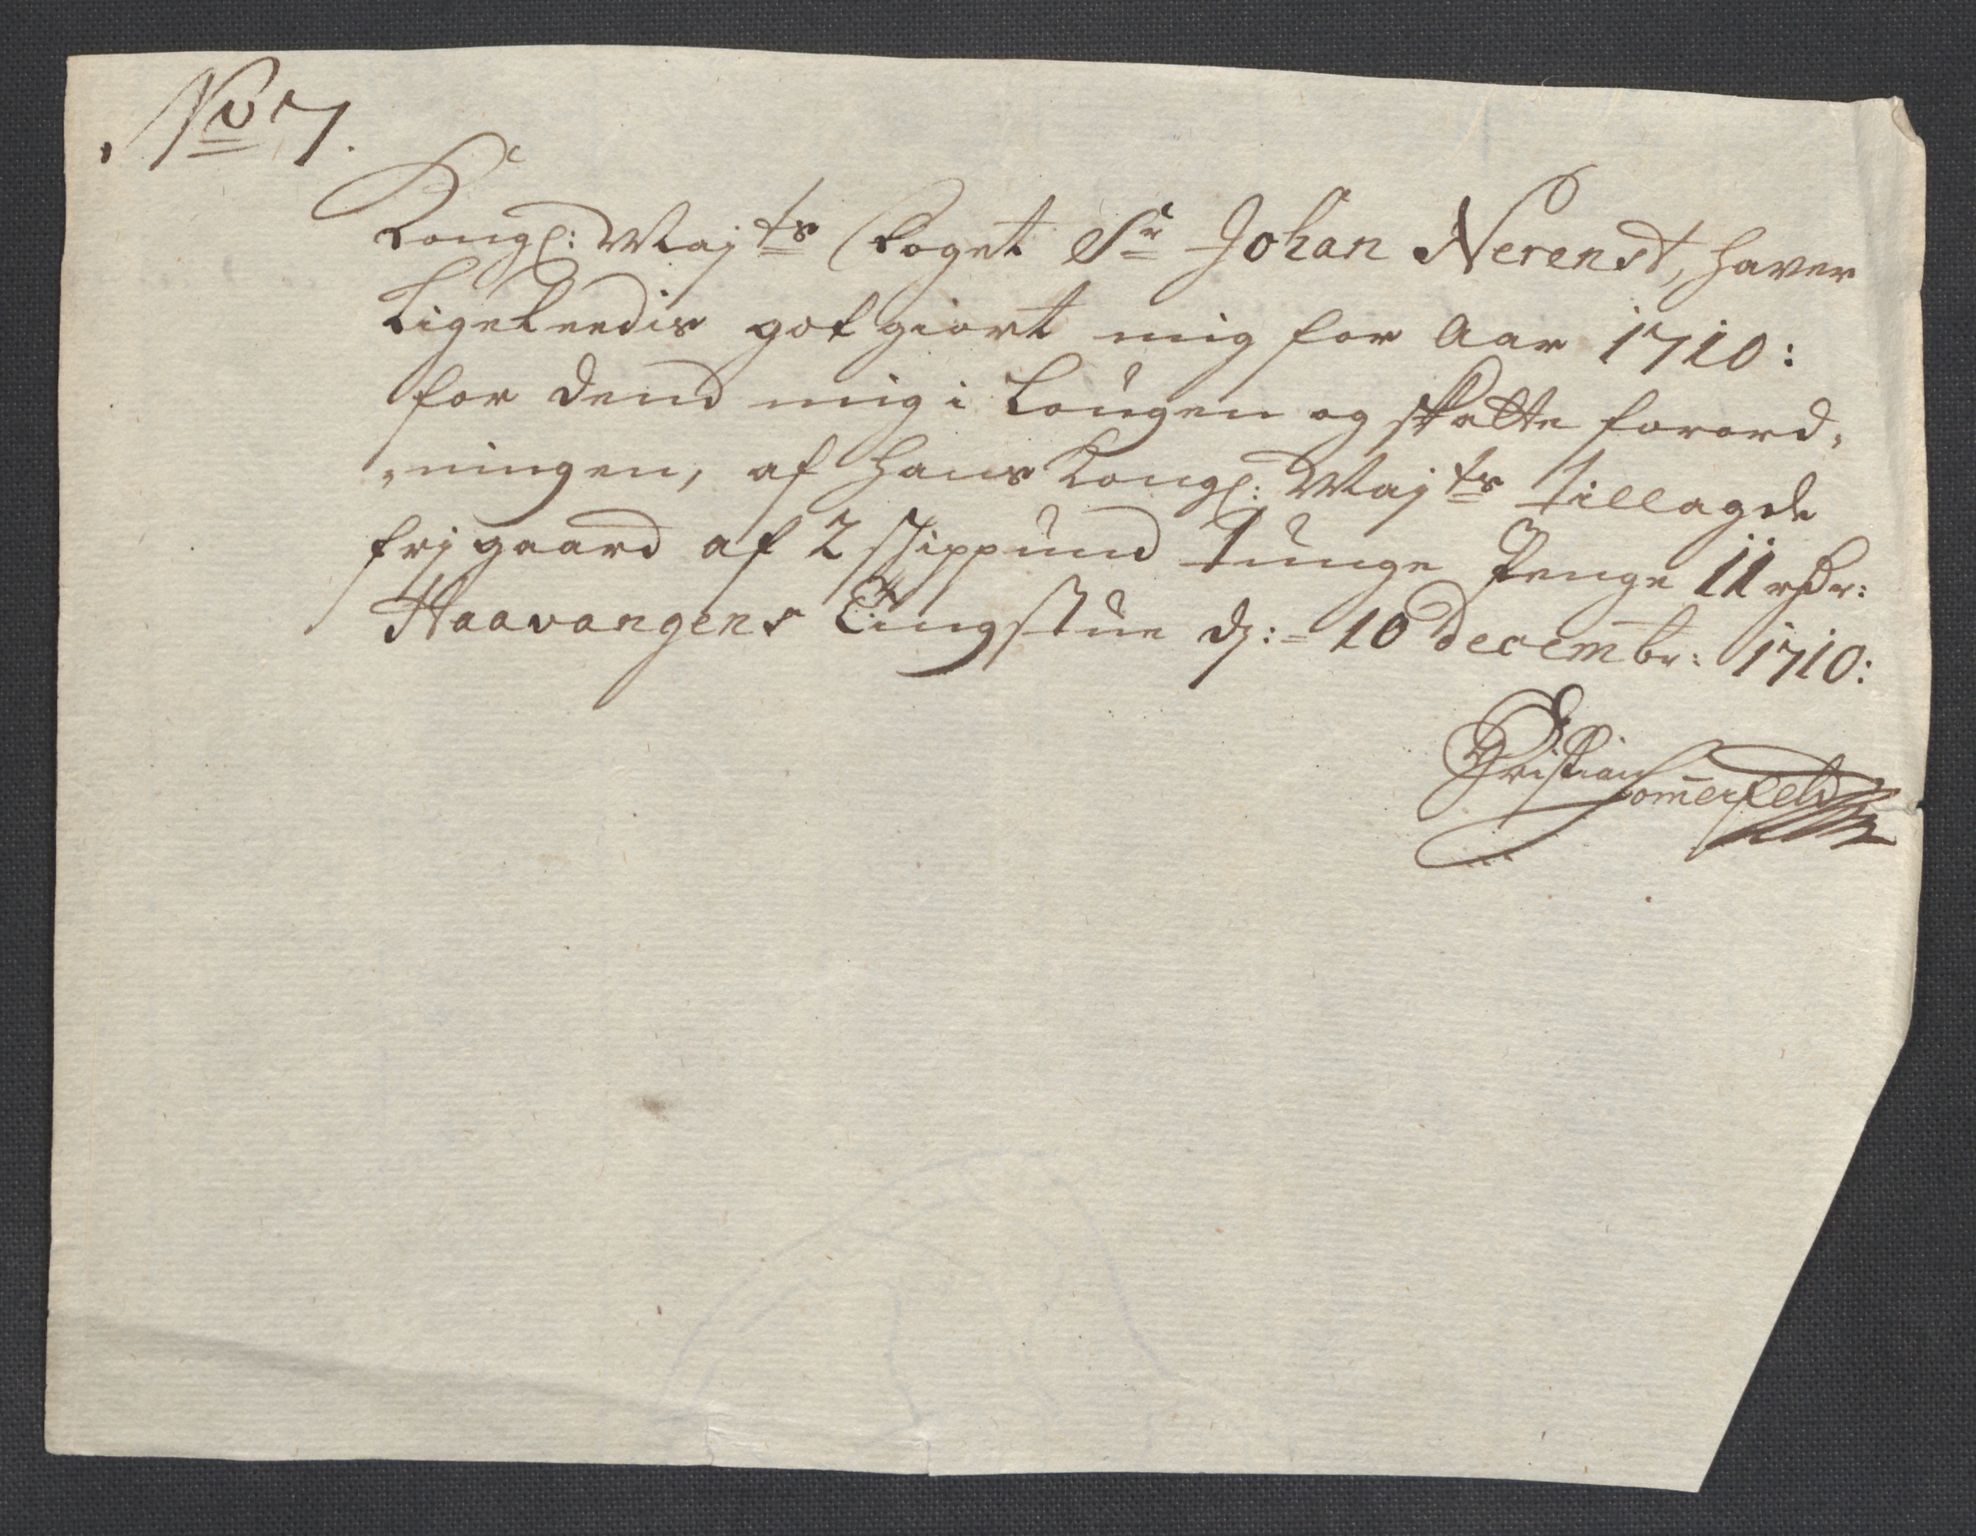 No 7.
Kongl: Maÿts Foget Sr Johan Nerenst, haver
Ligeleedis got giort mig for Aar 1710:
for dend mig i Lougen og skatte forord,
,ningen, af hans Kongl: Majts tillagde
frj gaard af 2 skippund tunge Penge 11 rdr:
Haavangens Tingstue d: = 10 decembr: 1710:
Christian Somerfeld